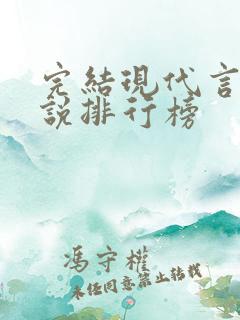 完結現代言
說排行榜
馮守權
未經同意禁止轉載